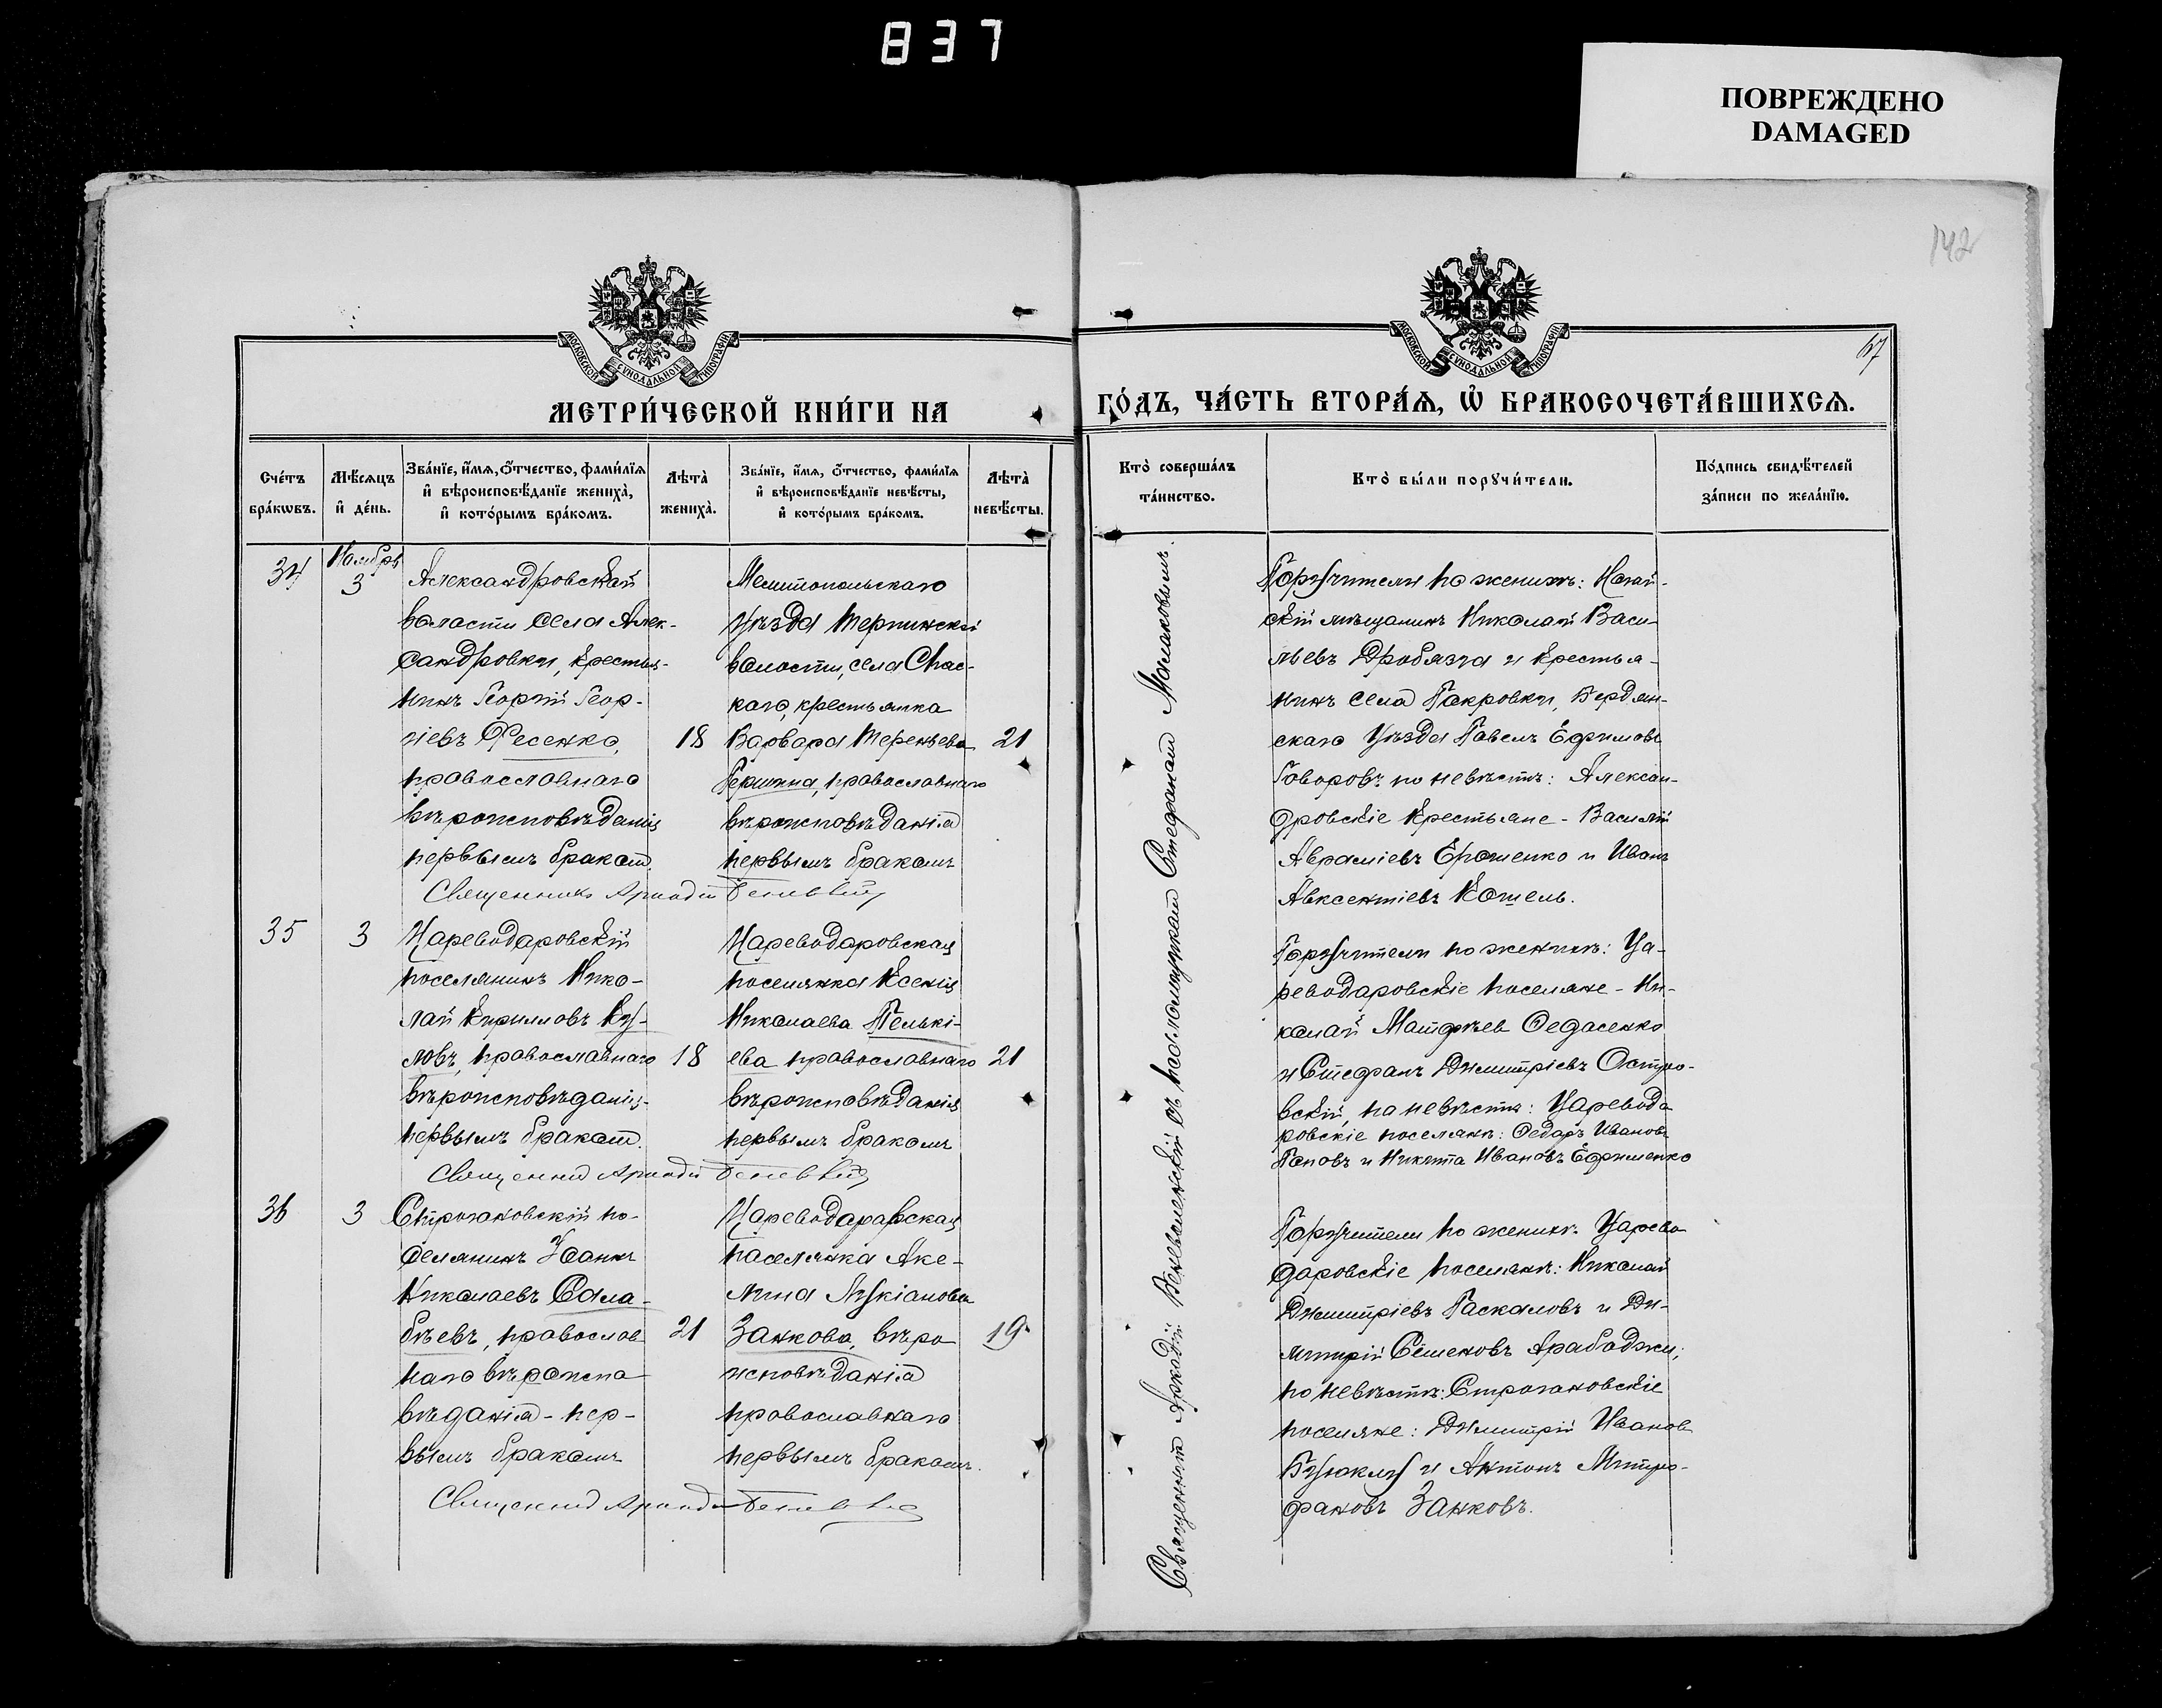 837
ПОВРЕЖДЕНО
DAMAGED
142
67
МОСКОВСКОЙ СѴНОДАЛЬНОЙ ТИПОГРАФІИ
МОСКОВСКОЙ СѴНОДАЛЬНОЙ ТИПОГРАФІИ
МЕТРИ́ЧЕСКОЙ КНИ́ГИ НА
ГО́ДЪ, ЧА́СТЬ ВТОРА́Ѧ, Ѡ҆ БРАКОСОЧЕТА́ВШИХСѦ.
Сче́тъ
бра́кѡвъ.
Мѣ́сѧцъ
и҆ де́нь.
Зва́нїе, и҆́мѧ, ѻ҆́тчество, фами́лїѧ
и҆ вѣроисповѣ́данїе жениха̀,
и҆ кото́рымъ бра́комъ.
Лѣта̀
жениха̀.
Зва́нїе, и҆́мѧ, ѻ҆́тчество, фами́лїѧ
и҆ вѣроисповѣ́данїе невѣ́сты,
и҆ кото́рымъ бра́комъ.
Лѣта̀
невѣ́сты.
Кто̀ соверша́лъ
та́инство.
Кто̀ бы́ли порꙋчи́тели.
По́дпись свидѣ́телей
за́писи по жела́нїю.
34
Ноябрь
3
Александровской
волости села Алек-
сандровки, крестья-
нинъ Георгій Геор-
гіевъ Фесенко,
православнаго
вѣроисповѣданія
первымъ бракомъ.
18
Мелитопольскаго
уѣзда Терпинской
волости, села Спас-
каго, крестьянка
Варвара Терентьева
православнаго
вѣроисповѣданія
первымъ бракомъ
21
Священникъ Аркадій
Поручители по женихѣ: Ногай-
скій мѣщанинъ Николай Васи-
льевъ Дробязга и крестья-
нинъ села Покровки, Бердян-
скаго уѣзда Павелъ Ефимовъ
Говоровъ по невѣстѣ: Алексан-
дровскіе крестьяне - Василій
Авраміевъ Ерошенко и Иванъ
Авксентіевъ Кошель.
35
3
Цареводаровскій
поселянинъ Нико-
лай Кирилловъ Ку-
ловъ, православнаго
вѣроисповѣданія-
первымъ бракомъ.
18
Цареводаровская
поселянка Ксенія
Николаева Пелькі-
ева православнаго
вѣроисповѣданія
первымъ бракомъ
21
Священник Аркадій
Поручители по женихѣ: Ца-
реводаровскіе поселяне - Ни-
колай Матфѣев Федосенко
и Стефанъ Димитріевъ Остро-
вскій, по невѣстѣ: Царевода
ровскіе поселяне: Федоръ Ивановъ
Поповъ и Никита Ивановъ Ефименко
36
3
Строгановскій по-
селянинъ Іоаннъ
Николаевъ Сала-
бѣевъ, православ
наго вѣроиспо
вѣданія - пер-
вымъ бракомъ
21
Цареводаровская
поселянка Аке-
лина Лукіанова
Занкова, вѣро
исповѣданія
православнаго
первымъ бракомъ.
19
Священник Аркадій
Поручители по женихѣ: Царево
даровскіе поселяне: Николай
Димитріевъ Паскаловъ и Ди-
митрій Семеновъ Арабаджи;
по невѣстѣ: Строгановскіе
поселяне: Димитрій Иванов
Буюклу и Антонъ Митро-
фановъ Занковъ.
Священникъ Аркадій съ псаломщикомъ Стефаномъ Маляковымъ.